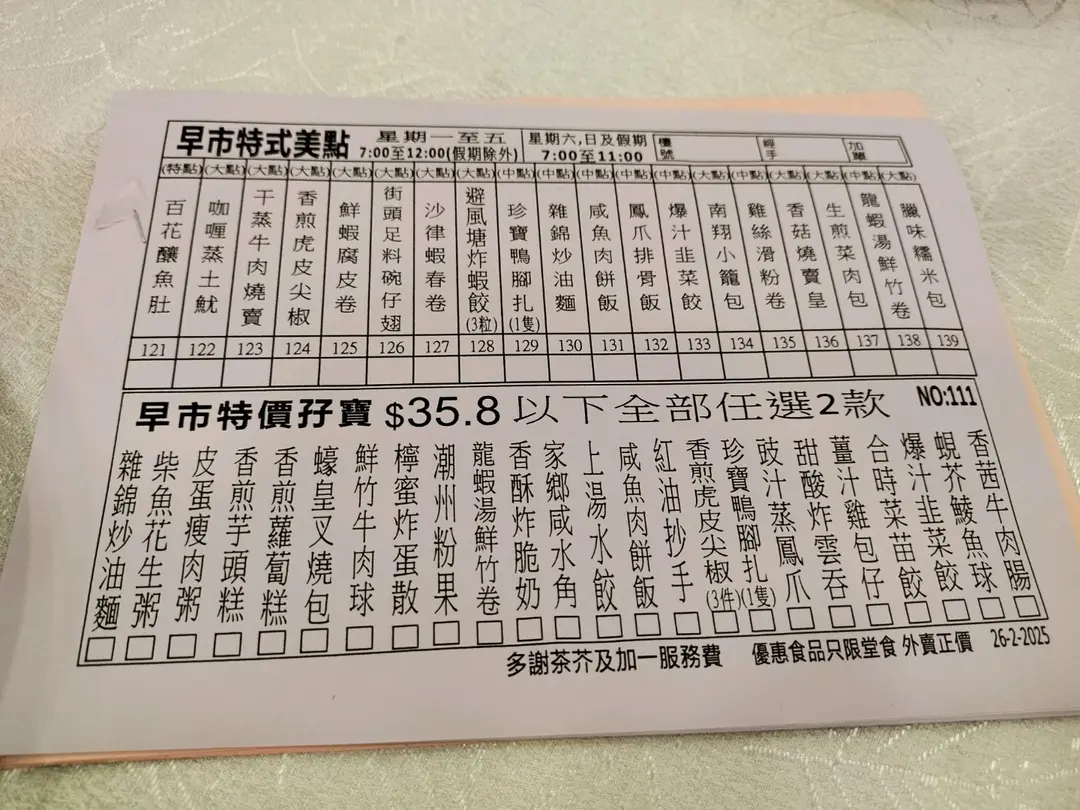 早市特式美點
星期一至五
7:00至12:00(假期除外)
星期六,日及假期
7:00至11:00
檯號
經手
加單
(特點)(大點)(大點)(大點)(大點)(大點)(大點)(大點)(中點)(中點)(中點)(中點)(中點)(大點)(中點)(大點)(大點)(中點)(大點)
百花釀魚肚
咖喱蒸土魷
干蒸牛肉燒賣
香煎虎皮尖椒
鮮蝦腐皮卷
街頭足料碗仔翅
沙律蝦春卷
避風塘炸蝦餃(3粒)
珍寶鴨腳扎(1隻)
雜錦炒油麵
咸魚肉餅飯
鳳爪排骨飯
爆汁韭菜餃
南翔小籠包
雞絲滑粉卷
香菇燒賣皇
生煎菜肉包
龍蝦湯鮮竹卷
臘味糯米包
121 122 123 124 125 126 127 128 129 130 131 132 133 134 135 136 137 138 139
早市特價孖寶 $35.8 以下全部任選2款 NO:111
雜錦炒油麵
柴魚花生粥
皮蛋瘦肉粥
香煎芋頭糕
香煎蘿蔔糕
蠔皇叉燒包
鮮竹牛肉球
檸蜜炸蛋散
潮州粉果
龍蝦湯鮮竹卷
香酥炸脆奶
家鄉咸水角
上湯水餃
咸魚肉餅飯
紅油抄手
香煎虎皮尖椒(3件)
珍寶鴨腳扎(1隻)
豉汁蒸鳳爪
甜酸炸雲吞
薑汁雞包仔
合時菜苗餃
爆汁韭菜餃
蜆芥鯪魚球
香茜牛肉腸
多謝茶芥及加一服務費 優惠食品只限堂食 外賣正價 26-2-2025